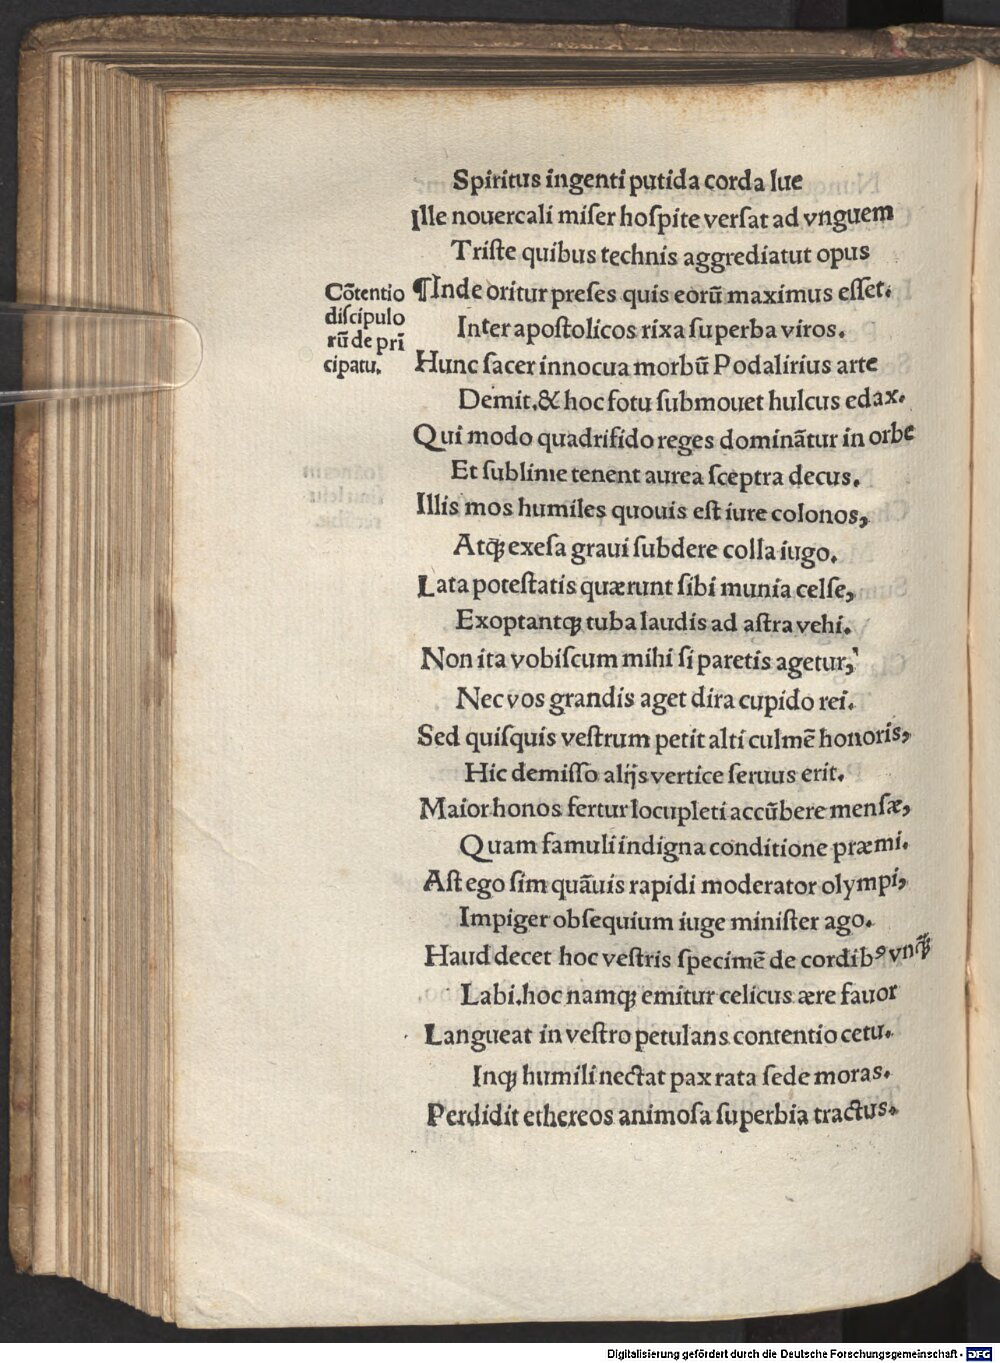 Spiritus ingenti putida corda lue
Ille nouercali miſer hoſpite verſat ad vnguem
Triſte quibus technis aggrediatut opus
Cõtentio
diſcipulo
rũ de pri
cipatu.
¶Inde oritur preſes quis eorũ maximus eſſet.
Inter apoſtolicos rixa ſuperba viros.
Hunc ſacer innocua morbũ Podalirius arte
Demit.& hoc fotu ſubmouet hulcus edax.
Qui modo quadrifido reges dominãtur in orbe
Et ſublime tenent aurea ſceptra decus.
Illis mos humiles quouis eſt iure colonos,
Atq; exeſa graui ſubdere colla iugo.
Lata poteſtatis quærunt ſibi munia celſe,
Exoptantq; tuba laudis ad aſtra vehi.
Non ita vobiſcum mihi ſi paretis agetur,
Nec vos grandis aget dira cupido rei.
Sed quiſquis veſtrum petit alti culmẽ honoris,
Hic demiſſo alijs vertice ſeruus erit.
Maior honos fertur locupleti accũbere menſæ,
Quam famuli indigna conditione præmi.
Aſt ego ſim quãuis rapidi moderator olympi,
Impiger obſequium iuge miniſter ago.
Haud decet hoc veſtris ſpecimẽ de cordibꝰ vnq̃;
Labi.hoc namq; emitur celicus ære fauor
Langueat in veſtro petulans contentio cetu.
Inq; humili nectat pax rata ſede moras.
Perdidit ethereos animoſa ſuperbia tractus.
Digitalisierung gefördert durch die Deutsche Forschungsgemeinschaft - DFG